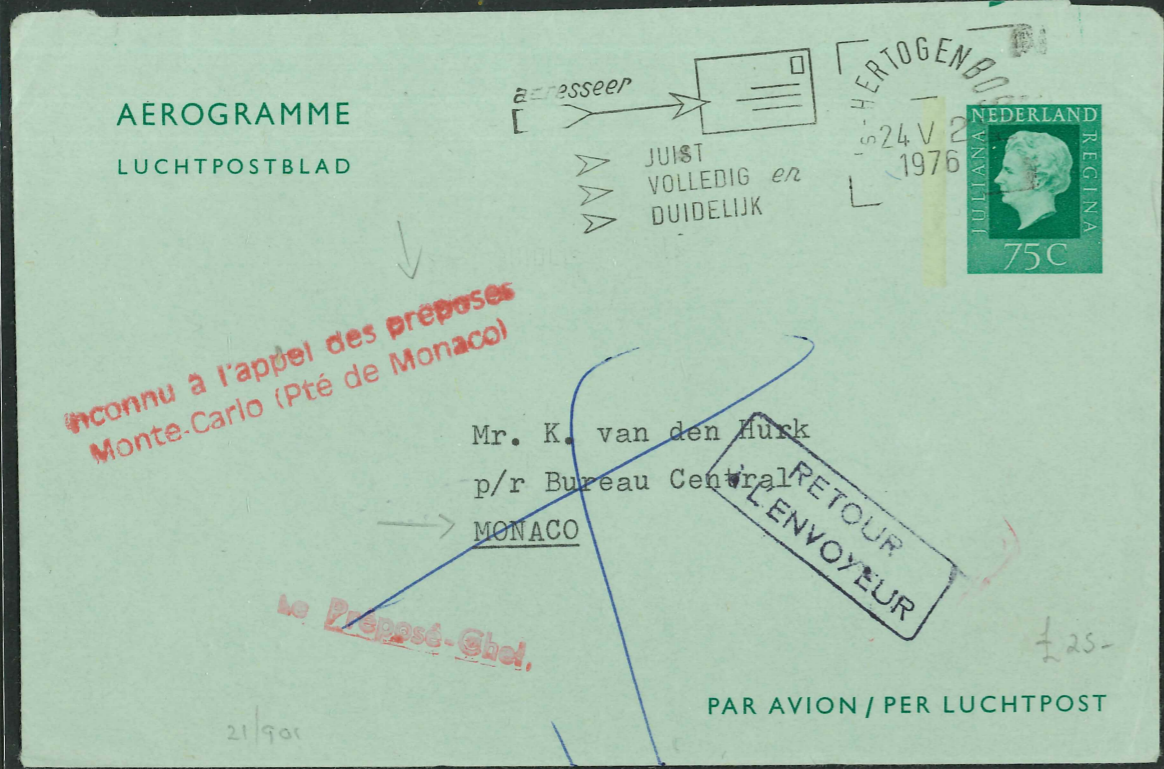 AEROGRAMME
LUCHTPOSTBLAD
adresseer
JUIST
VOLLEDIG en
DUIDELIJK
'S-HERTOGENBOS
24 V 2
1976
NEDERLAND
JULIANA
REGINA
75C
Inconnu à l'appel des préposés
Monte-Carlo (Pté de Monaco)
Mr. K. van den Hurk
p/r Bureau Central
MONACO
RETOUR
A L'ENVOYEUR
Le Préposé-Chef,
£25-
PAR AVION / PER LUCHTPOST